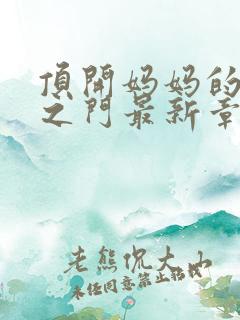 顶开妈妈的
之门最新章
老熊侃大山
未经同意禁止转载